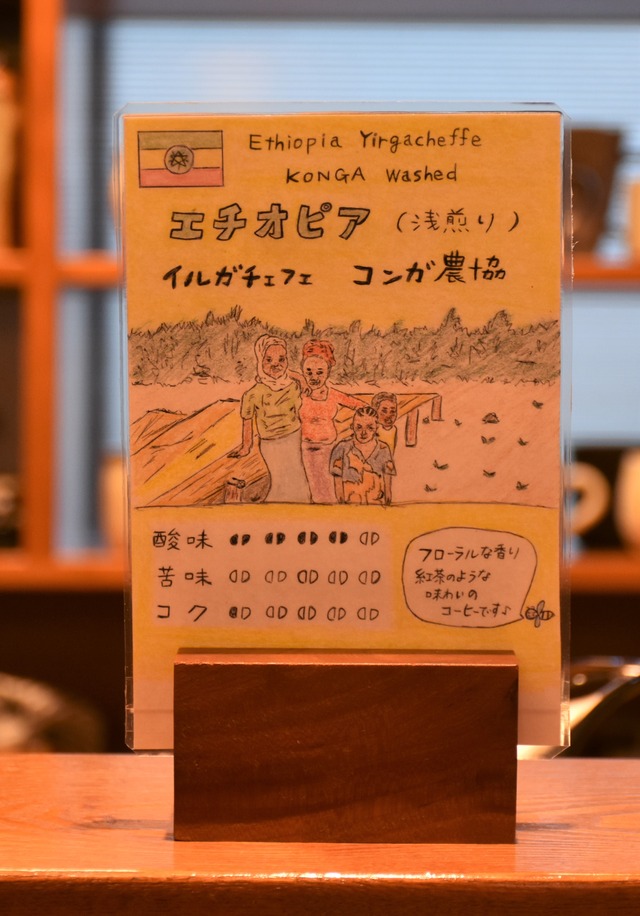 Ethiopia Yirgacheffe
KONGA Washed
エチオピア (浅煎り)
イルガチェフェ コンガ農協
酸味
苦味
コク
フローラルな香り
紅茶のような
味わいの
コーヒーです♪